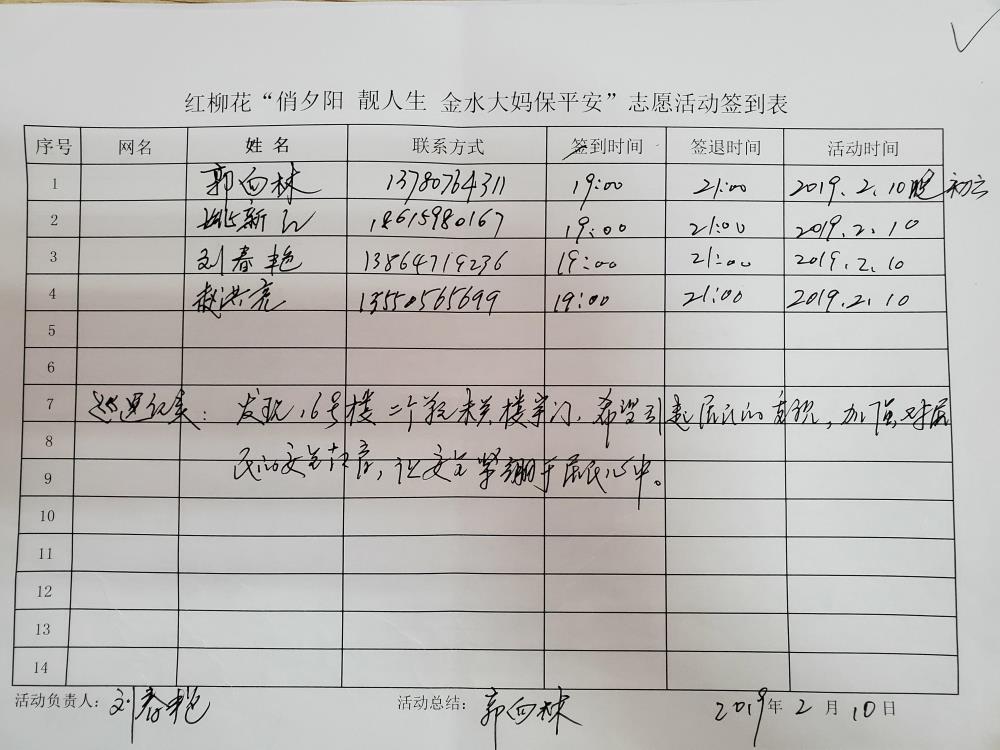 红柳花“俏夕阳 靓人生 金水大妈保平安”志愿活动签到表
序号 网名 姓名 联系方式 签到时间 签退时间 活动时间
1 郭向林 13780764311 19:00 21:00 2019.2.10晚 初六
2 新 18615980167 19:00 21:00 2019.2.10
3 刘春艳 13864719236 19:00 21:00 2019.2.10
4 赵洪亮 13550565699 19:00 21:00 2019.2.10
5
6
7 巡逻纪实：发现16号楼二个单元未关楼宇门，希望引起居民的重视，加强对居
8
民的安全，让安全紧绷于居民心中。
9
10
11
12
13
14
活动负责人：刘春艳 活动总结：郭向林 2019年2月10日